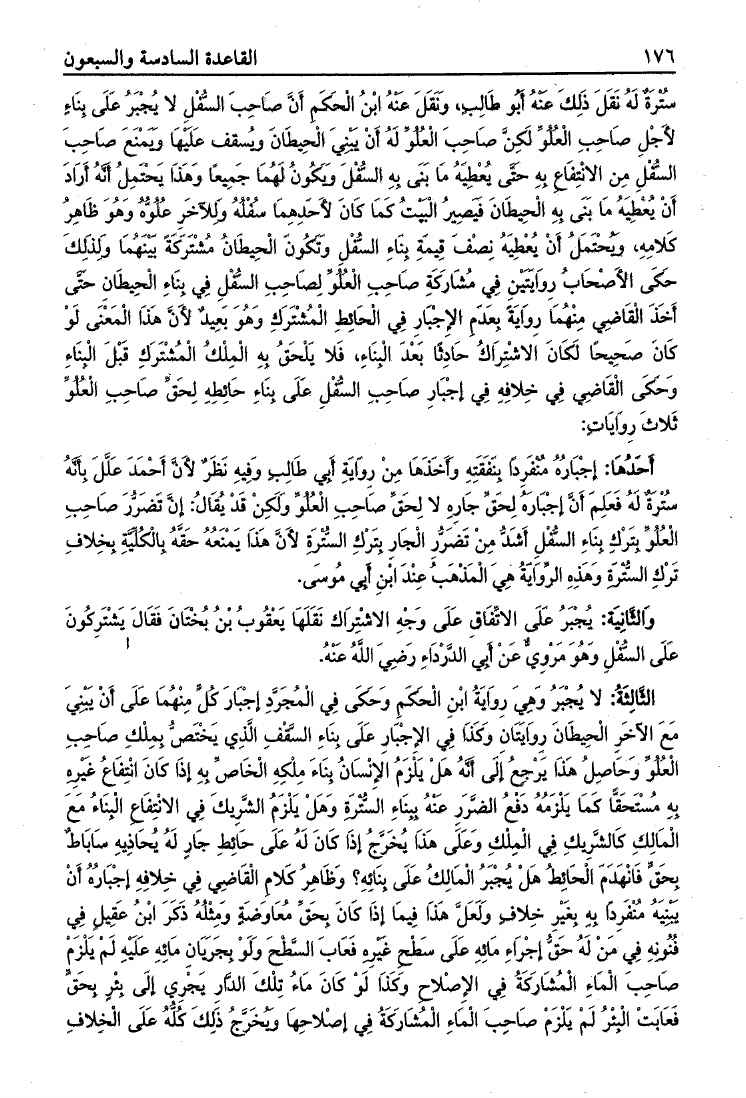 ١٧٦ القاعدة السادسة والسبعون
سُتْرَةٌ لَهُ نَقَلَ ذَلِكَ عَنْهُ أَبُو طَالِبٍ، وَنَقَلَ عَنْهُ ابْنُ الْحَكَمِ أَنَّ صَاحِبَ السُّفْلِ لَا يُجْبَرُ عَلَى بِنَاءٍ
لِأَجْلِ صَاحِبِ الْعُلُوِّ لَكِنَّ صَاحِبَ الْعُلُوِّ لَهُ أَنْ يَبْنِيَ الْحِيطَانَ وَيُسقف عَلَيْهَا وَيَمْنَعَ صَاحِبَ
السُّفْلِ مِن الانْتِفَاعِ بِهِ حَتَّى يُعْطِيَهُ مَا بَنَى بِهِ السُّفْلَ وَيَكُونُ لَهُمَا جَمِيعًا وَهَذَا يَحْتَمِلُ أَنَّهُ أَرَادَ
أَنْ يُعْطِيَهُ مَا بَنَى بِهِ الْحِيطَانَ فَيَصِيرُ الْبَيْتُ كَمَا كَانَ لأَحَدِهِمَا سُفْلُهُ وَلِلآخَرِ عُلُوُّهُ وَهُوَ ظَاهِرُ
كَلَامِهِ، وَيُحْتَمَلُ أَنْ يُعْطِيَهُ نِصْفَ قِيمَةِ بِنَاءِ السُّفْلِ وَتَكُونَ الْحِيطَانُ مُشْتَرَكَةً بَيْنَهُمَا وَلِذَلِكَ
حَكَى الأَصْحَابُ رِوَايَتَيْنِ فِي مُشَارَكَةِ صَاحِبِ الْعُلُوِّ لِصَاحِبِ السُّفْلِ فِي بِنَاءِ الْحِيطَانِ حَتَّى
أَخَذَ الْقَاضِي مِنْهُمَا رِوَايَةً بِعَدَمِ الإِجْبَارِ فِي الْحَائِطِ الْمُشْتَرَكِ وَهُوَ بَعِيدٌ لأَنَّ هَذَا الْمَعْنَى لَوْ
كَانَ صَحِيحًا لَكَانَ الاشْتِرَاكُ حَادِثًا بَعْدَ الْبِنَاءِ، فَلَا يَلْحَقُ بِهِ الْمِلْكُ الْمُشْتَرَكِ قَبْلَ الْبِنَاءِ
وَحَكَى الْقَاضِي فِي خِلَافِهِ فِي إِجْبَارِ صَاحِبِ السُّفْلِ عَلَى بِنَاءِ حَائِطِهِ لِحَقِّ صَاحِبِ الْعُلُوِّ
ثَلَاثَ رِوَايَاتٍ:
أَحَدُهَا: إِجْبَارُهُ مُنْفَرِدًا بِنَفَقَتِهِ وَأَخَذَهَا مِنْ رِوَايَةِ أَبِي طَالِبٍ وَفِيهِ نَظَرٌ لأَنَّ أَحْمَدَ عَلَّلَ بِأَنَّهُ
سُتْرَةٌ لَهُ فَعَلِمَ أَنَّ إِجْبَارَهُ لِحَقِّ جَارِهِ لَا لِحَقِّ صَاحِبِ الْعُلُوِّ وَلَكِنْ قَدْ يُقَالُ: إِنَّ تَضَرُّرَ صَاحِبِ
الْعُلُوِّ بِتَرْكِ بِنَاءِ السُّفْلِ أَشَدُّ مِنْ تَضَرُّرِ الْجَارِ بِتَرْكِ السُّتْرَةِ لأَنَّ هَذَا يَمْنَعُهُ حَقَّهُ بِالْكُلِّيَّةِ بِخِلَافِ
تَرْكِ السُّتْرَةِ وَهَذِهِ الرِّوَايَةُ هِيَ الْمَذْهَبُ عِنْدَ ابْنِ أَبِي مُوسَى.
وَالثَّانِيَةُ: يُجْبَرُ عَلَى الاتِّفَاقِ عَلَى وَجْهِ الاشْتِرَاكِ نَقَلَهَا يَعْقُوبُ بْنُ بُخْتَانَ فَقَالَ يَشْتَرِكُونَ
عَلَى السُّفْلِ وَهُوَ مَرْوِيٌّ عَنْ أَبِي الدَّرْدَاءِ رَضِيَ اللَّهُ عَنْهُ.
الثَّالِثَةُ: لَا يُجْبَرُ وَهِيَ رِوَايَةُ ابْنِ الْحَكَمِ وَحَكَى فِي الْمُجَرَّدِ إِجْبَارَ كُلٍّ مِنْهُمَا عَلَى أَنْ يَبْنِيَ
مَعَ الآخَرِ الْحِيطَانَ رِوَايَتَانِ وَكَذَا فِي الإِجْبَارِ عَلَى بِنَاءِ السَّقْفِ الَّذِي يَخْتَصُّ بِمِلْكِ صَاحِبِ
الْعُلُوِّ وَحَاصِلُ هَذَا يَرْجِعُ إِلَى أَنَّهُ هَلْ يَلْزَمُ الإِنْسَانُ بِنَاءَ مِلْكِهِ الْخَاصِّ بِهِ إِذَا كَانَ انْتِفَاعُ غَيْرِهِ
بِهِ مُسْتَحَقًّا كَمَا يَلْزَمُهُ دَفْعُ الضَّرَرِ عَنْهُ بِبِنَاءِ السُّتْرَةِ وَهَلْ يَلْزَمُ الشَّرِيكَ فِي الانْتِفَاعِ الْبِنَاءُ مَعَ
الْمَالِكِ كَالشَّرِيكِ فِي الْمِلْكِ وَعَلَى هَذَا يُخَرَّجُ إِذَا كَانَ لَهُ عَلَى حَائِطِ جَارٍ لَهُ يُحَاذِيهِ سَابَاطٌ
بِحَقٍّ فَانْهَدَمَ الْحَائِطُ هَلْ يُجْبَرُ الْمَالِكُ عَلَى بِنَائِهِ؟ وَظَاهِرُ كَلَامِ الْقَاضِي فِي خِلَافِهِ إِجْبَارُهُ أَنْ
يَبْنِيَهُ مُنْفَرِدًا بِهِ بِغَيْرِ خِلَافٍ وَلَعَلَّ هَذَا فِيمَا إِذَا كَانَ بِحَقِّ مُعَاوَضَةٍ وَمِثْلُهُ ذَكَرَ ابْنُ عَقِيلٍ فِي
فُنُونِهِ فِي مَنْ لَهُ حَقُّ إِجْرَاءِ مَائِهِ عَلَى سَطْحِ غَيْرِهِ فَعَابَ السَّطْحَ وَلَوْ بِجَرَيَانِ مَائِهِ عَلَيْهِ لَمْ يَلْزَمْ
صَاحِبَ الْمَاءِ الْمُشَارَكَةُ فِي الإِصْلَاحِ وَكَذَا لَوْ كَانَ مَاءُ تِلْكَ الدَّارِ يَجْرِي إِلَى بِئْرٍ بِحَقٍّ
فَعَابَتْ الْبِئْرُ لَمْ يَلْزَمْ صَاحِبَ الْمَاءِ الْمُشَارَكَةُ فِي إِصْلَاحِهَا وَيُخَرَّجُ ذَلِكَ كُلُّهُ عَلَى الْخِلَافِ